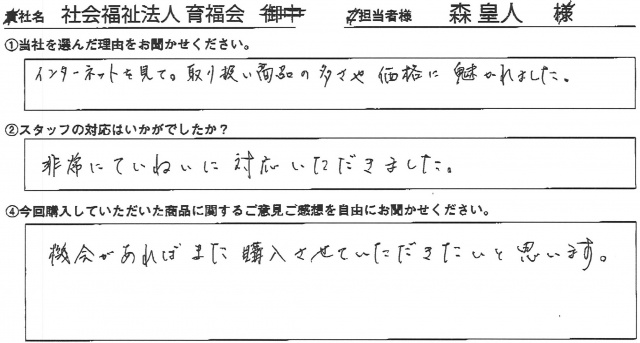 貴社名 社会福祉法人 育福会 御中 ご担当者様 森 皇人 様
①当社を選んだ理由をお聞かせください。
インターネットを見て。取り扱い商品の多さや価格に魅かれました。
②スタッフの対応はいかがでしたか？
非常にていねいに対応いただきました。
④今回購入していただいた商品に関するご意見ご感想を自由にお聞かせください。
機会があればまた購入させていただきたいと思います。